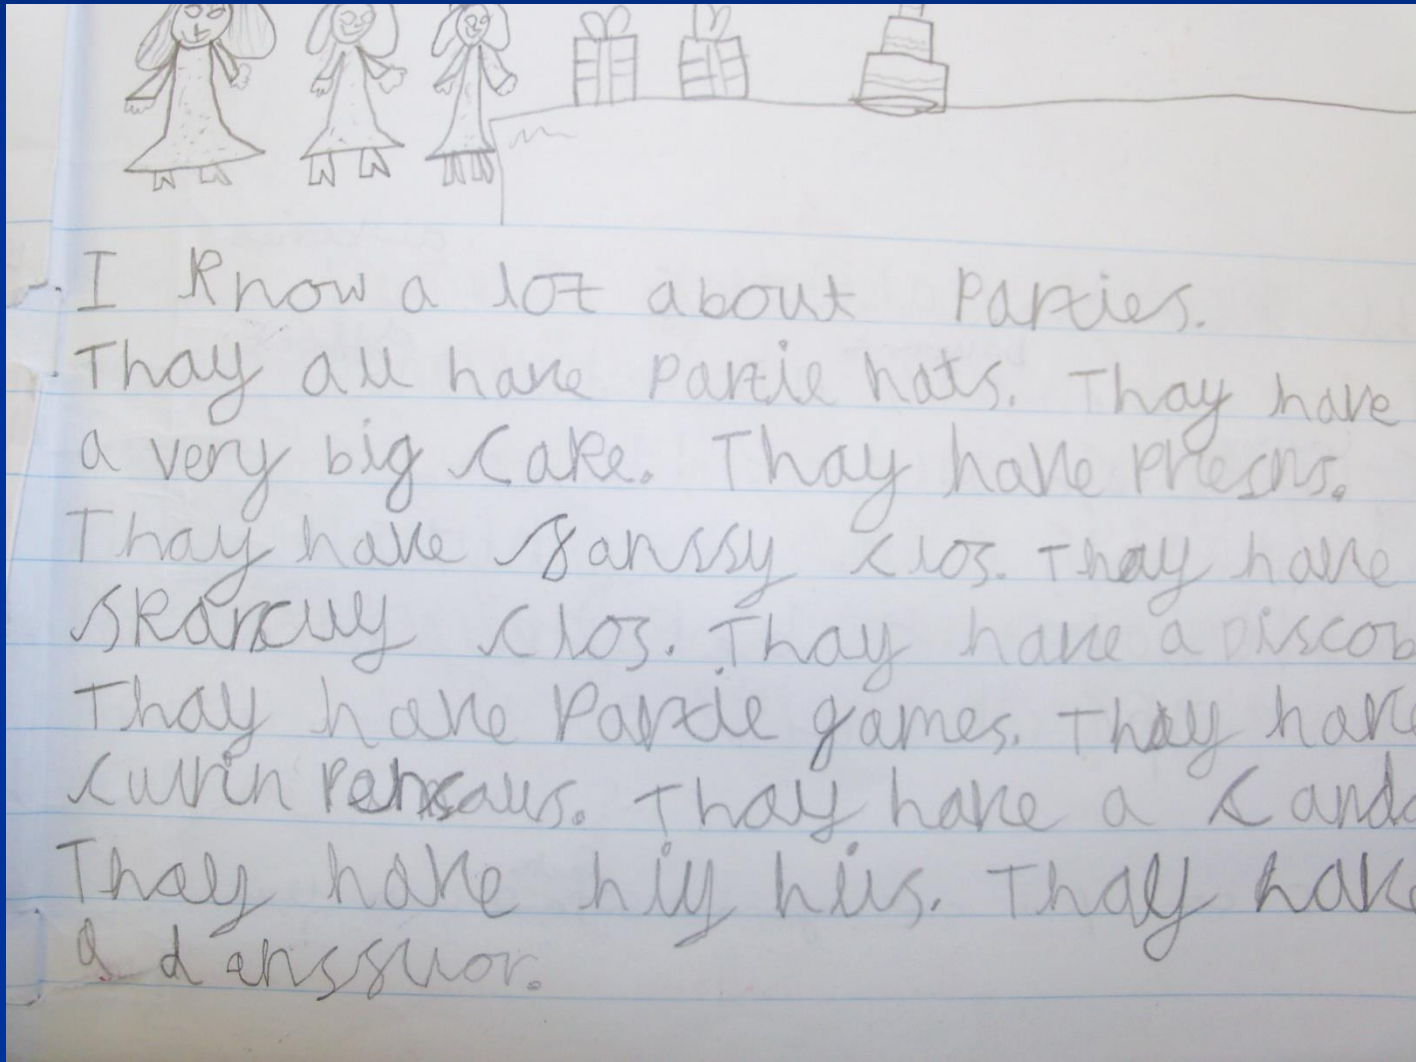 I know a lot about Parties.
Thay all have partie hats. Thay have
a very big cake. Thay have presns.
Thay have fanssy clos. Thay have
skarcuy clos. Thay have a Discob
Thay have Partie games. Thay have
culrin pensaus. Thay have a cand
Thay have hiy hiis. Thay have
a denssfluor.